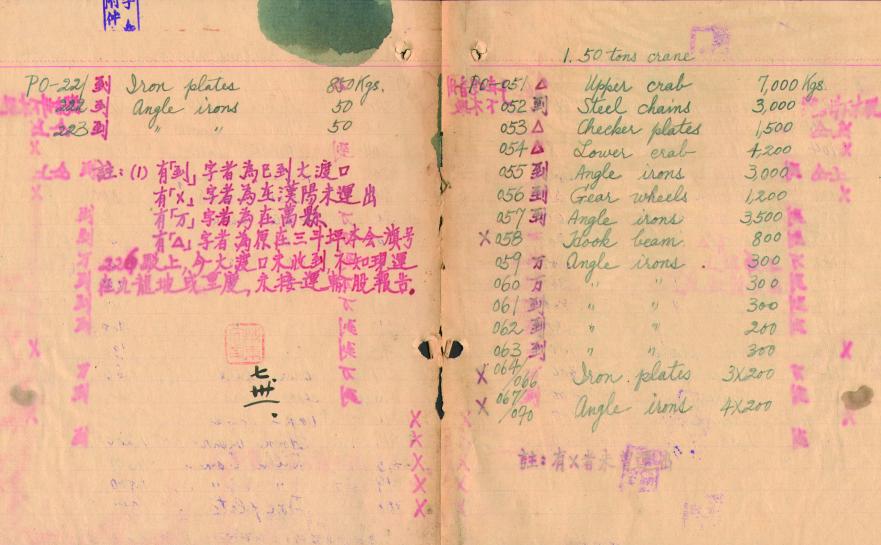 附件
PO-221 到 Iron plates 850 Kgs.
222 到 Angle irons 50
223 到 " " 50
註: (1) 有「到」字者為已到大渡口
有「X」字者為在漢陽未運出
有「万」字者為在萬縣
有「△」字者為原在三斗坪本会旗号
226駁上,今大渡口未收到不知現運
在九龍坡或重慶,未接運輸股報告。
七.
卅.
1. 50 tons crane
PO-051 △ Upper crab 7,000 Kgs.
052 到 Steel chains 3,000
053 △ Checker plates 1,500
054 △ Lower crab 4,200
055 到 Angle irons 3,000
056 到 Gear wheels 1,200
057 到 Angle irons 3,500
X 058 Hook beam 800
059 万 Angle irons 300
060 万 " " 300
061 到 " " 300
062 到 " " 200
063 到 " " 300
X 064/066 Iron plates 3X200
X 067/070 Angle irons 4X200
註: 有X者未曾運出